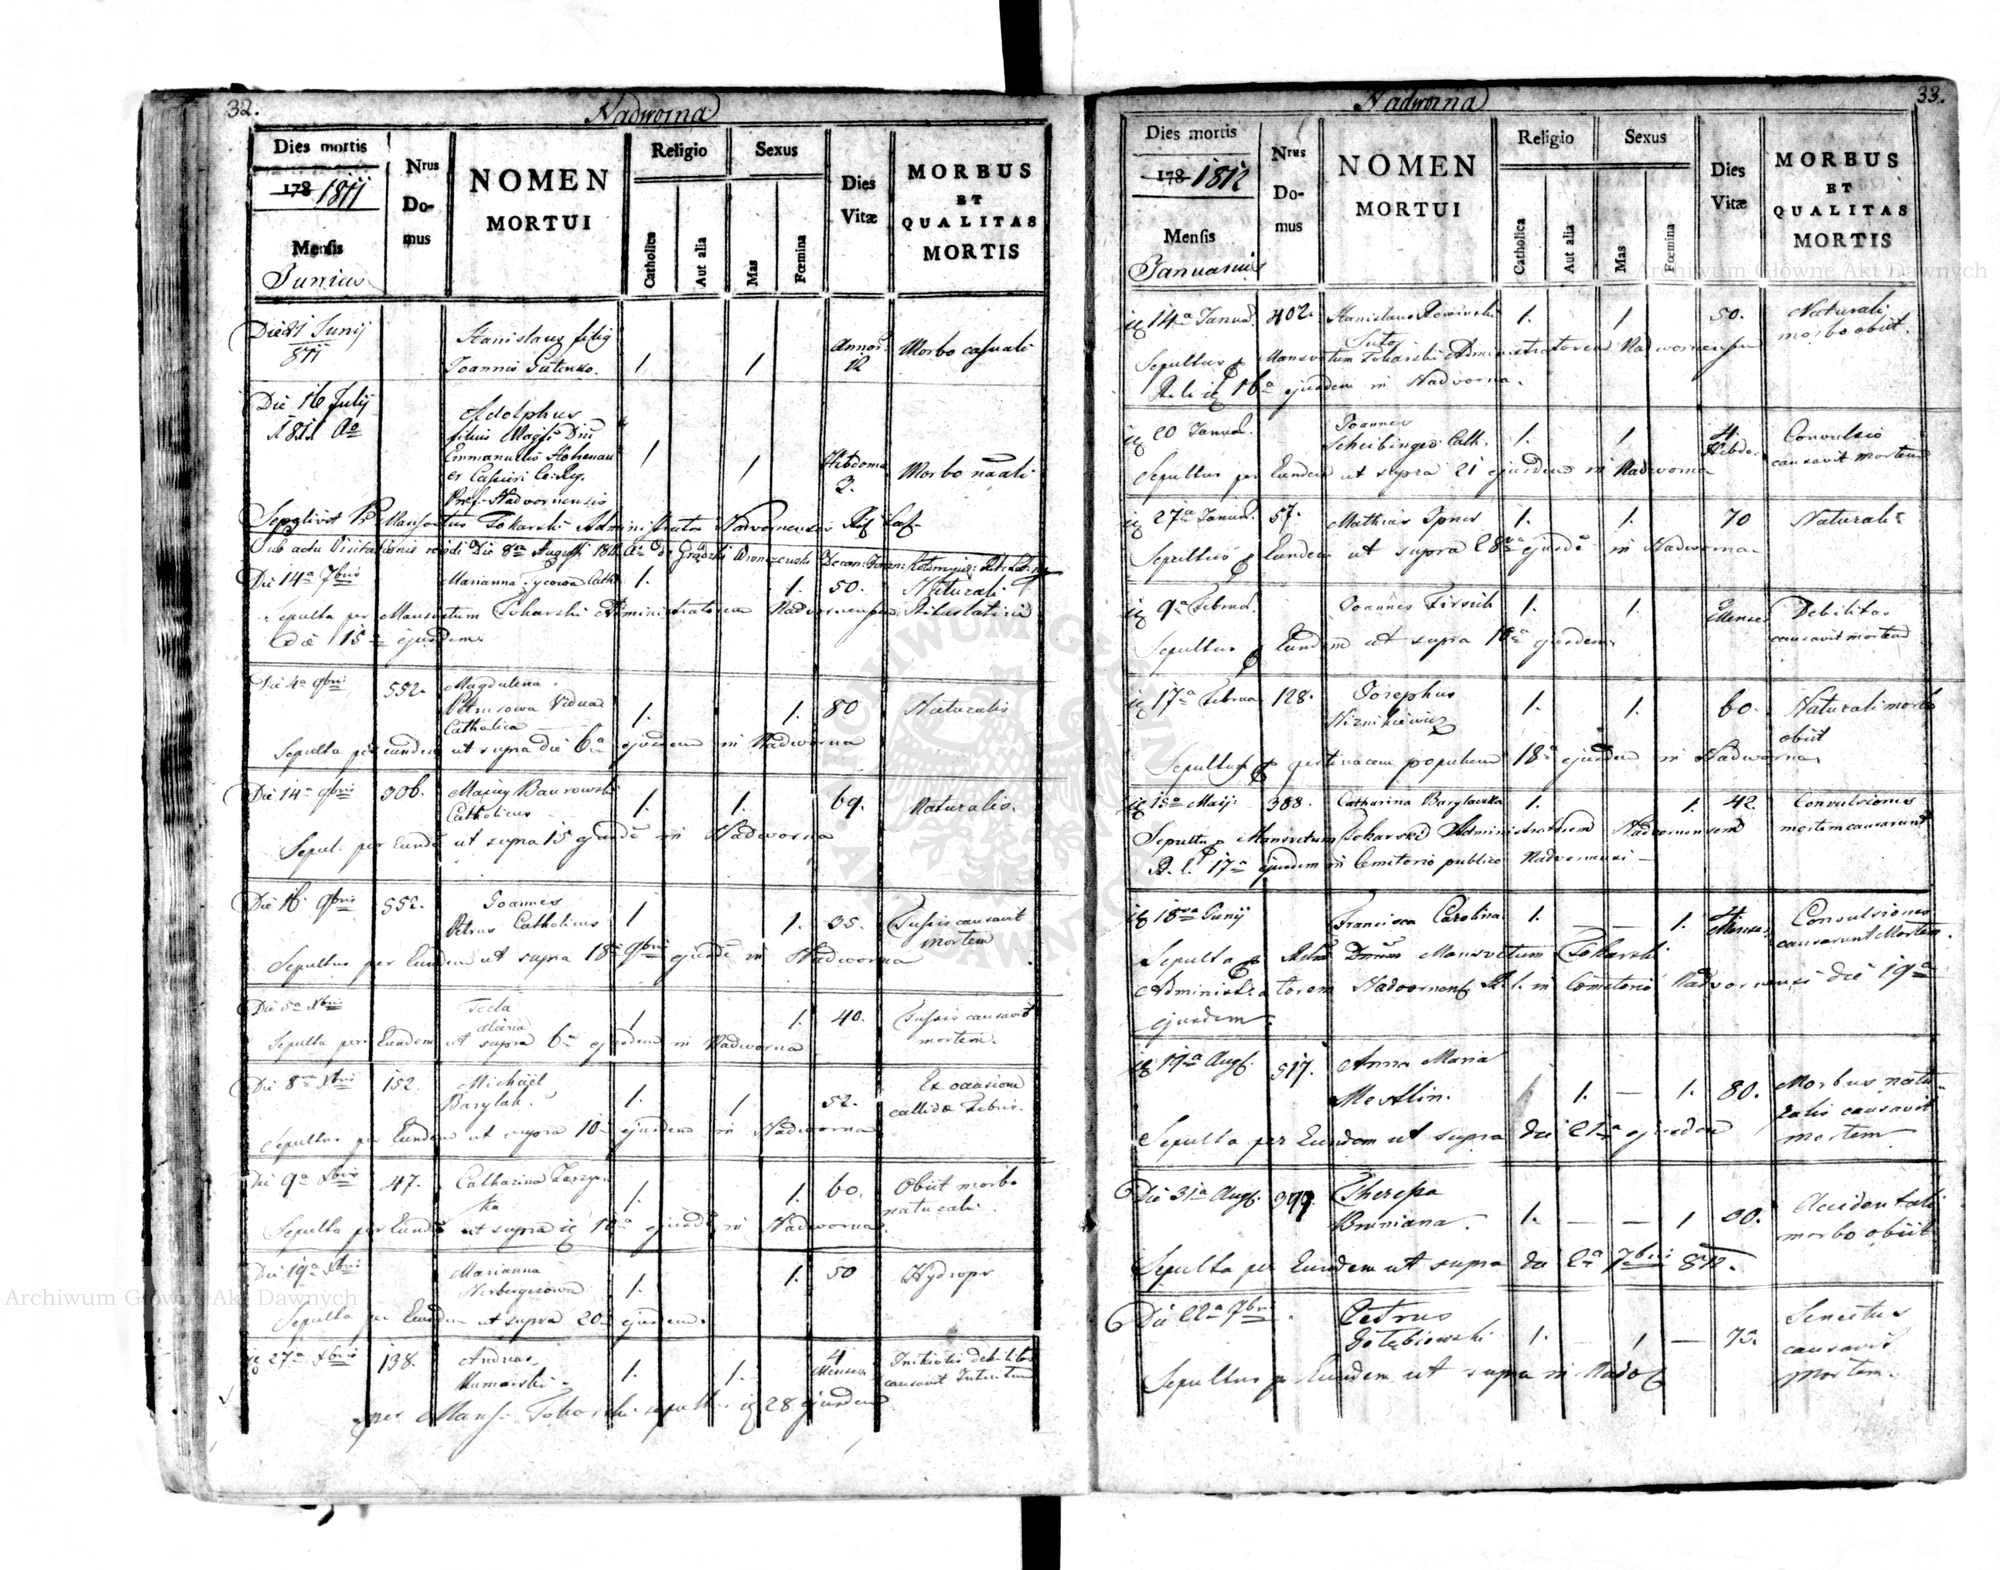 32.
Nadworna
Dies mortis
178 1811
Mensis
Junius
Nrus
Do-
mus
NOMEN
MORTUI
Religio
Catholica
Aut alia
Sexus
Mas
Fœmina
Dies
Vitæ
MORBUS
ET
QUALITAS
MORTIS
Die 21 Junij
811
Stanislaus filig
Joannis Gutenko.
1
1
Annor.
12
Morbo casuali
Die 16 Julij
1811 Ao
Adolphus
filius Magfi Dni
Emmanuelis Hohenau
er Cassiri
Nadvornensis
1
1
Hebdoma
2.
Morbo naali
Sepelivit Mansvetus Tokarski Administrator Nadvornensis Rit. Lat.
Sub actu Visitationis Die 8va Augusti 1811
Die 14a 7bris
Marianna Tycowa Cath.
1.
1.
50.
Naturali
Sepulta per Mansvetum Tokarski Administratorem Nadvornensem Ritus latini
die 15a ejusdem
Die 4a 9bris
552.
Magdalena
Petrusowa Vidua
Catholica
1.
1.
80
Naturalis
Sepulta per eundem ut supra die 6a ejusdem in Nadworna
Die 14a 9bris
306.
Baurowski
Catholicus
1.
1.
69.
Naturalis.
Sepul. per Eundē ut supra 15 ejusdē in Nadworna
Die 16 9bris
552.
Joannes
Petrus Catholicus
1
1.
35.
Tussis causavit
mortem
Sepultus per Eundem ut supra 18a 9bris ejusdē in Nadworna
Die 5a Xbris
Tecla
1.
1.
40.
Tussis causavit
mortem.
Sepulta per Eundem ut supra 6a ejusdem in Nadworna
Die 8va Xbris
152.
Michael
Barylak.
1.
1
52.
Ex occasione
callidæ Febris.
Sepultus per Eundem ut supra 10a ejusdem in Nadworna
Die 9a Xbris
47.
Catharina
ska
1.
1.
60.
Obiit morbo
naturali.
Sepulta per Eundē ut supra 10a ejusdē in Nadworna
Die 19a Xbris
Marianna
Nerbergerowa
1.
1.
50
Hydrops
Sepulta per Eundem ut supra 20a ejusdem.
27a Xbris
138.
Andreas
Humanski
1.
1.
4
Menses
debilitas
causavit Interitum
per Mans. Tokarski sepultus 28 ejusdem
33.
Nadworna
Dies mortis
178 1812
Mensis
Januarius
Nrus
Do-
mus
NOMEN
MORTUI
Religio
Catholica
Aut alia
Sexus
Mas
Fœmina
Dies
Vitæ
MORBUS
ET
QUALITAS
MORTIS
14a Januar.
402.
Stanislaus Rowinski
Sutor
1.
1
50.
Naturali
morbo obiit.
Sepultus p Mansvetum Tokarski Administratorem Nadwornensem
R. l. 16a ejusdem in Nadvorna.
20 Januar.
Joannes
Scheibinger Cath.
1.
1
4
Hebdo.
Convulsio
causavit mortem
Sepultus per Eundem ut supra 21 ejusdem in Nadworna
27a Januar.
57.
Mathias Ipnes
1.
1.
70
Naturalis
Sepultus p Eundem ut supra 28va ejusdē in Nadworna
9a Februar.
Joannes Firsich
1.
1.
Menses
Debilitas
causavit mortem
Sepultus p Eundem ut supra 10a ejusdem
17a Februa
128.
Josephus
Niznikiewicz
1.
1.
60.
Naturali morbo
obiit
Sepultus p pertinacem populum 18a ejusdem in Nadworna
15a Maij
388.
Catharina Barylacka
1.
1.
42.
Convulsiones
mortem causarunt
Sepulta p Mansvetum Tokarski Administratorem Nadvornensem
R. l. 17a ejusdem in Cemiterio publico Nadvornensi
18va Junij
Francisca Carolina
1.
1.
4
Menses
Convulsiones
causarunt Mortem.
Sepulta p Mansvetum Tokarski
Administratorem Nadvornens. R. l. in Cemiterio Nadvornensi die 19a
ejusdem.
19a Augs.
517.
Anna Maria
Mestlin.
1.
1.
80.
Morbus natu-
ralis causavit
mortem
Sepulta per Eundem ut supra die 21a ejusdem
Die 31a Augs.
379.
Theressa
Bruniana.
1.
1
Accidentali
morbo obiit
Sepulta per Eundem ut supra die 2a 7bris 812.
Die 22a 7bris
Petrus
Gołębiowski
1.
1
Senectus
causavit
mortem.
Sepultus p Eundem ut supra in Nadv
Archiwum Główne Akt Dawnych
Archiwum Główne Akt Dawnych
ARCHIWUM GŁÓWNE AKT DAWNYCH